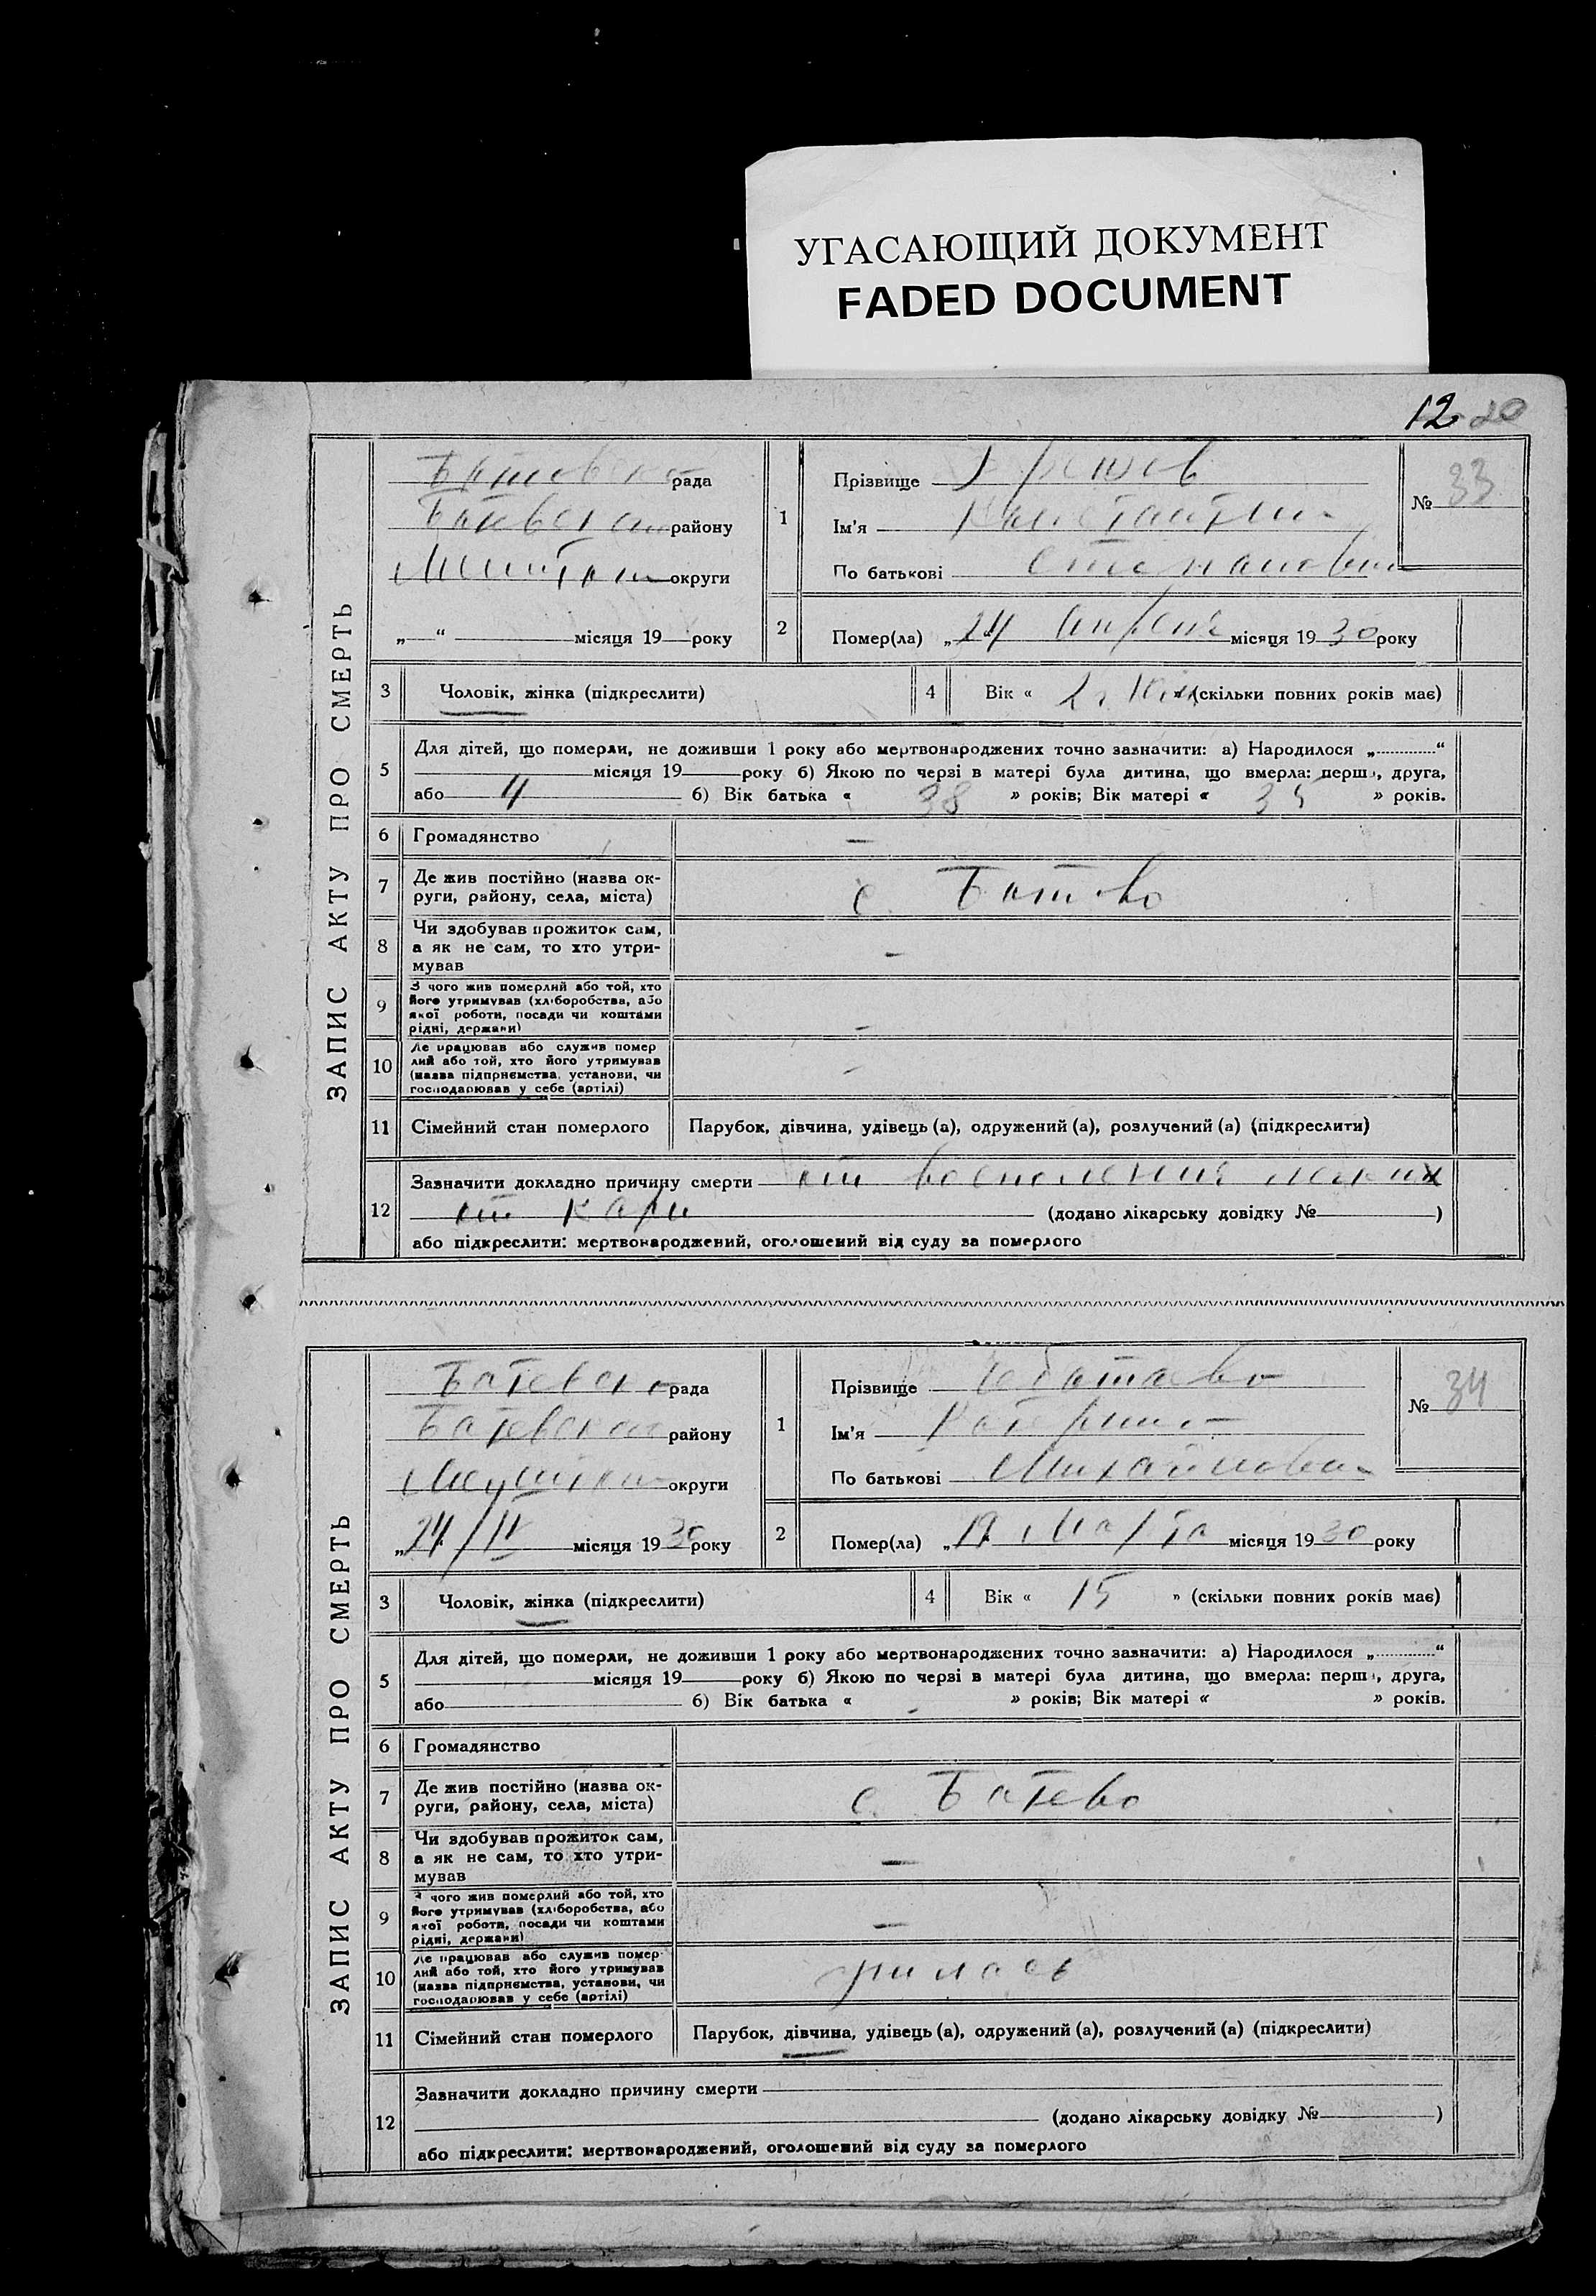 УГАСАЮЩИЙ ДОКУМЕНТ
FADED DOCUMENT
12 20
ЗАПИС АКТУ ПРО СМЕРТЬ
рада
району
округи
„ “ місяця 19 року
1
Прізвище
Ім'я Константин
По батькові
№ 33
2
Помер(ла) „24 апреля місяця 1930 року
3
Чоловік, жінка (підкреслити)
4
Вік « » (скільки повних років має)
5
Для дітей, що померли, не доживши 1 року або мертвонароджених точно зазначити: а) Народилося „ “
місяця 19 року б) Якою по черзі в матері була дитина, що вмерла: перша, друга,
або 4 б) Вік батька « 38 » років; Вік матері « 35 » років.
6
Громадянство –
7
Де жив постійно (назва ок-
руги, району, села, міста)
с. Батево
8
Чи здобував прожиток сам,
а як не сам, то хто утри-
мував
–
9
З чого жив померлий або той, хто
його утримував (хліборобства, або
якої роботи, посади чи коштами
рідні, держави)
–
10
Де працював або служив помер
лий або той, хто його утримував
(назва підприємства, установи, чи
господарював у себе (артілі)
–
11
Сімейний стан померлого
Парубок, дівчина, удівець (а), одружений (а), розлучений (а) (підкреслити)
12
Зазначити докладно причину смерти от воспаления легких
от кори (додано лікарську довідку № )
або підкреслити: мертвонароджений, оголошений від суду за померлого
ЗАПИС АКТУ ПРО СМЕРТЬ
Батевска рада
Батевская району
округи
„24/IV місяця 1930 року
1
Прізвище
Ім'я Катерина
По батькові Михайловна
№ 34
2
Помер(ла) „ марта місяця 1930 року
3
Чоловік, жінка (підкреслити)
4
Вік « 15 » (скільки повних років має)
5
Для дітей, що померли, не доживши 1 року або мертвонароджених точно зазначити: а) Народилося „ “
місяця 19 року б) Якою по черзі в матері була дитина, що вмерла: перша, друга,
або б) Вік батька « - » років; Вік матері « » років.
6
Громадянство
7
Де жив постійно (назва ок-
руги, району, села, міста)
с. Батево
8
Чи здобував прожиток сам,
а як не сам, то хто утри-
мував
–
9
З чого жив померлий або той, хто
його утримував (хліборобства, або
якої роботи, посади чи коштами
рідні, держави)
–
10
Де працював або служив помер
лий або той, хто його утримував
(назва підприємства, установи, чи
господарював у себе (артілі)
11
Сімейний стан померлого
Парубок, дівчина, удівець (а), одружений (а), розлучений (а) (підкреслити)
12
Зазначити докладно причину смерти
(додано лікарську довідку № )
або підкреслити: мертвонароджений, оголошений від суду за померлого